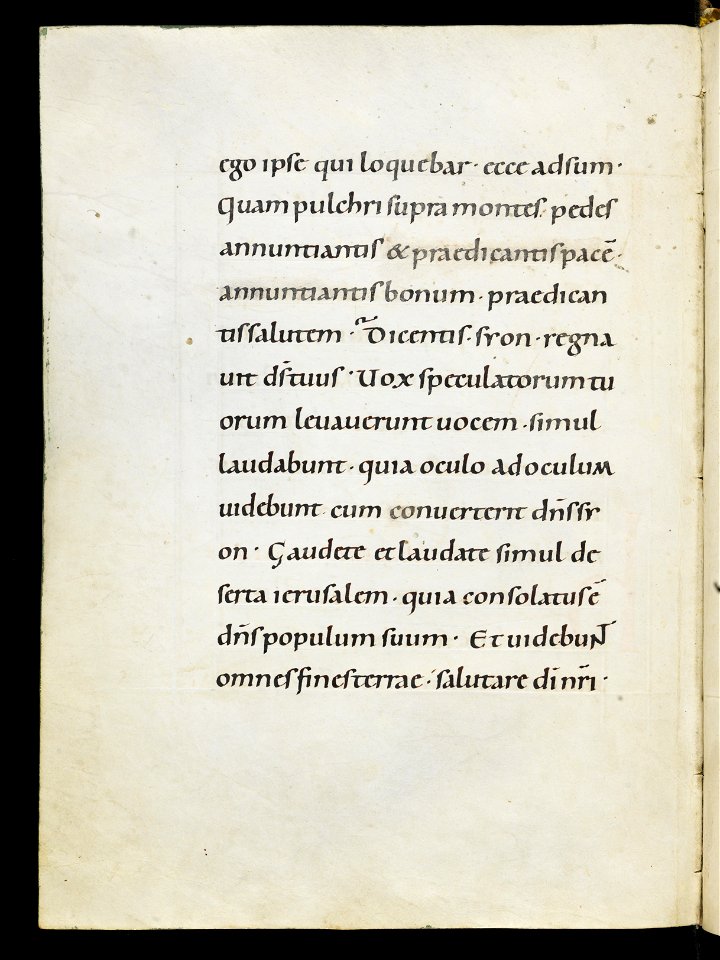 ego ipse qui loquebar · ecce adsum ·
Quam pulchri supra montes · pedes
annuntiantis & praedicantis pacē ·
annuntiantis bonum · praedican
tis salutem · Dicentis · syon · regna
uit ds̄ tuus · Uox speculatorum tu
orum leuauerunt uocem · simul
laudabunt · quia oculo ad oculum
uidebunt · cum conuerterit dn̄s sy
on · Gaudete et laudate simul de
serta ierusalem · quia consolatus ē
dn̄s populum suum · Et uidebunt
omnes fines terrae · salutare dī nr̄i ·